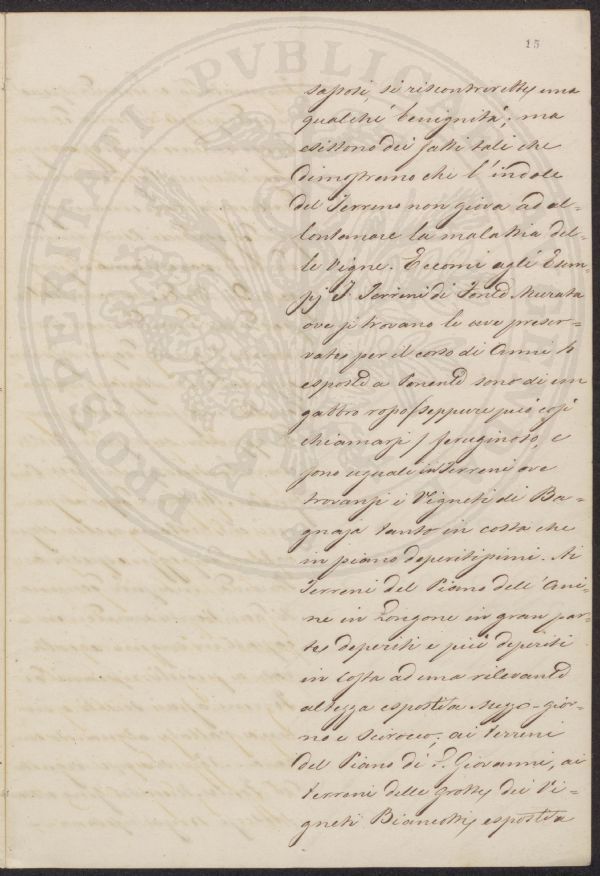 15
saposi, si riscontrerebbe una
qualche benignità; ma
esistono dei fatti tali che
dimostrano che l'indole
del Terreno non giova ad al-
lontanare la malattia del-
le Vigne. Eccomi agli Esem-
pj I Terreni di Murata
ove si trovano le uve preser-
vate per il corso di Anni 4
esposti a Ponente sono di un
rosso (seppure può così
chiamarsi) feruginoso, e
sono uguali in Terreni ove
trovansi i Vigneti di Ba-
gnaja tanto in costa che
in piano deperitissimi. Ai
Terreni del Piano dell'
ne in Longone in gran par-
te deperiti e più deperiti
in Costa ad una rilevante
altezza esposti a Mezzo-gior-
no e Scirocco; ai Terreni
del Piano di S. Giovanni, ai
terreni delle Grotte dei Vi-
gneti esposti a
PROSPERITATI PVBLICAE